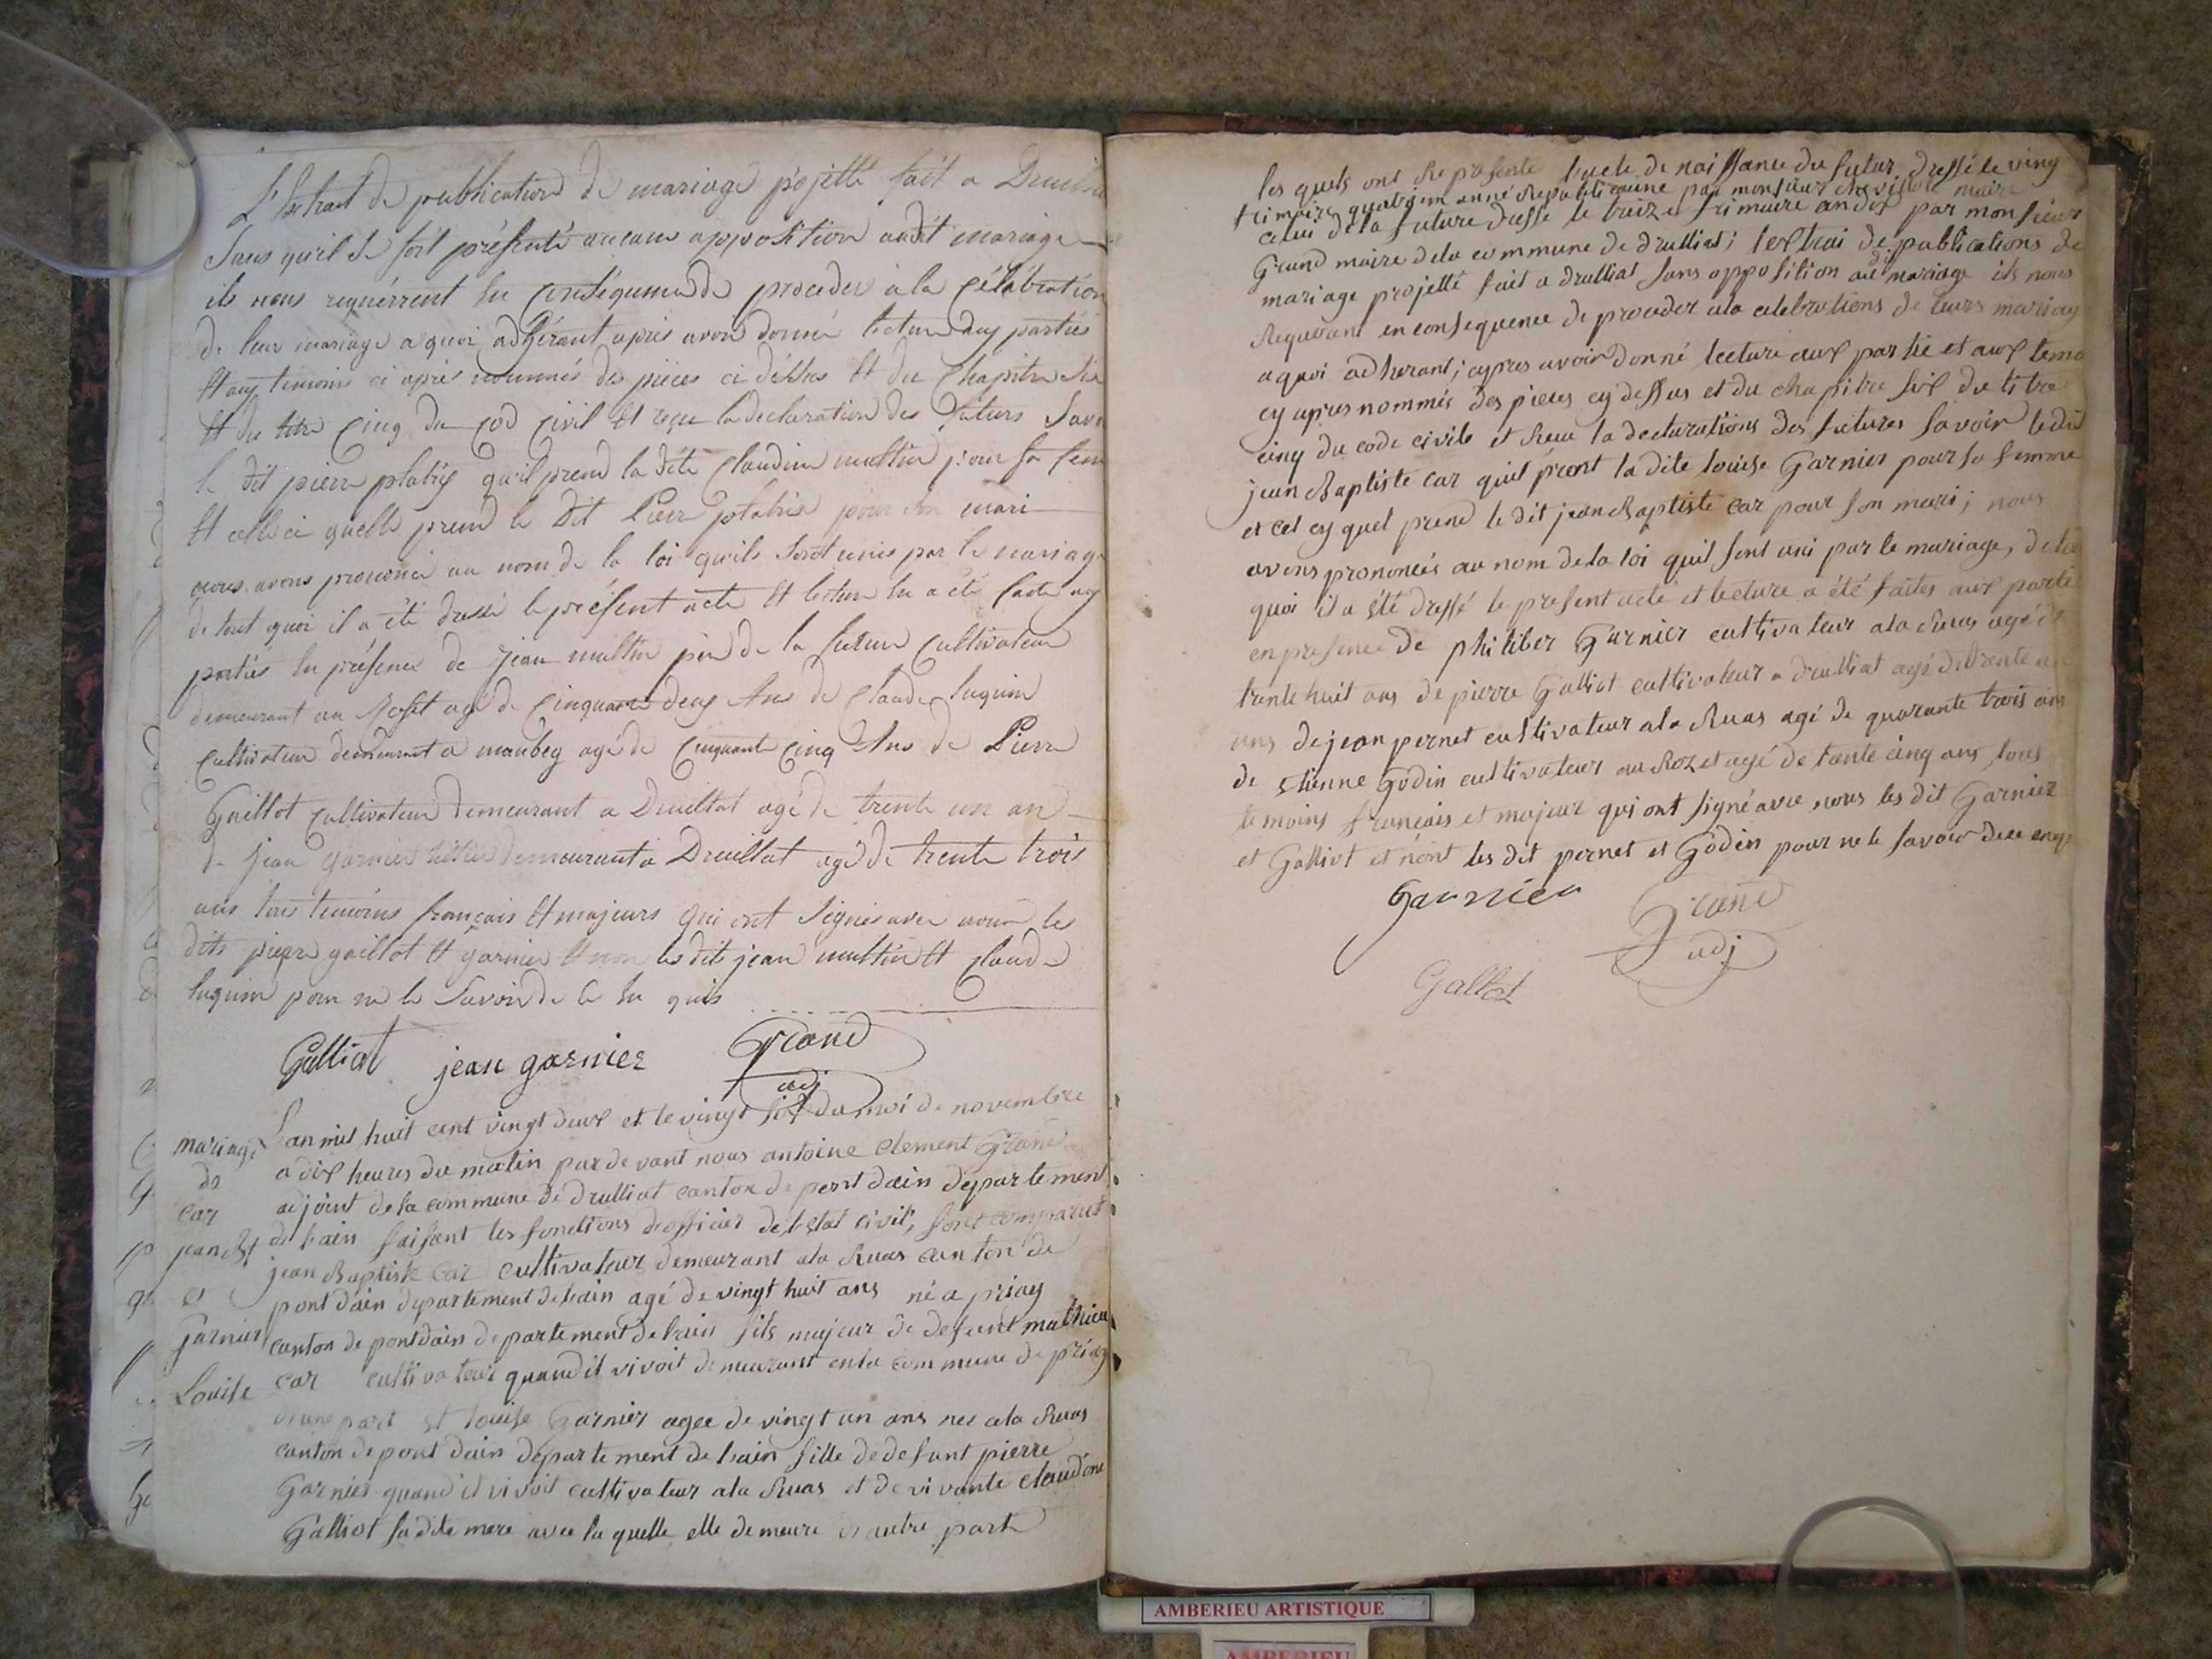 L'Extrait de publication de mariage projetté fait a Druillat
sans qu'il se soit présenté aucune opposition audit mariage
ils nous requérrent en conséquence de proceder à la célébration
de leur mariage a quoi adhérant après avoir donné lecture aux parties
Et aux temoins ci après nommés des pièces ci déssus Et du Chapitre six
Et du titre Cinq du cod Civil Et reçu la declaration des futurs savoir
le dit pierre qu'il prend la dite Claudine multin pour sa fem
Et celle ci quelle prend le Dit Pierre pour son mari
nous avons prononcé au nom de la loi qu'ils sont unis par le mariage
de tout quoi il a été dressé le présent acte Et lecture en a été faite aux
parties en présence de jean multin père de la future Cultivateur
demeurant au Roset agé de Cinquante deux Ans de Claude luquin
Cultivateur demeurant a agé de Cinquante Cinq Ans de Pierre
Gaillot Cultivateur demeurant a Druillat agé de trente un an
de jean garnier demeurant a Druillat agé de trente trois
ans tous temoins français Et majeurs qui ont signés avec nous les
dits pierre gaillot Et garnier Et non les dits jean multin Et Claude
luquin pour ne le savoir de ce en quis
Galliot jean garnier Grand
adj
Lan mil huit cent vingt deux et le vingt six du moi de novembre
mariage a dix heures du matin par de vant nous antoine clement Grand
de adjoint de la commune de drulliat canton de pont dain departement
car de lain faisant les fonctions dofficier de lestat civil, sont comparut
jean Bt jean Baptiste car cultivateur demeurant ala Ruas canton de
et pont dain departement de lain agé de vingt huit ans né a priay
Garnier canton de pont dain departement de lain fils majeur de defunt mathieu
Louise car cultivateur quand il vivoit demeurant en la commune de priay
dune part et louise Garnier agee de vingt un ans nee ala Ruas
canton de pont dain departement de lain fille de defunt pierre
Garnier quand il vivoit cultivateur ala Ruas et de vivante claudine
Galliot sa dite mere avec la quelle elle demeure dautre part
les quels ont Represente lacte de naissance du futur dressé le ving
frimaire quatriem anné Republicaine par monsieur maire
celui dela future dresse le treize frimaire an dix par monsieur
Grand maire dela commune de drulliat; lextrai de publications de
mariage projetté fait a drulliat sans opposition au dit mariage ils nous
Requerant en consequence de proceder ala celebrations de leurs mariag
a quoi adherant; apres avoir donné lecture aux partie et aux temo
cy apres nommés des pieces cy dessus et du chapitre six du titre
cinq du code civile et Recu la declarations des futures savoir ledit
jean Baptiste car quil prent la dite louise Garnier pour sa femme
et cel cy quel prend le dit jean Baptiste car pour son mari; nous
avons prononcés au nom dela loi quil sont uni par le mariage, de tou
quoi il a été dressé le present acte et lecture a été faites aux partie
en presence de philiber Garnier cultivateur ala Ruas agé de
trente huit ans de pierre Galliot cultivateur a drulliat agé de trente un
ans de jean pernet cultivateur ala Ruas agé de quarante trois ans
de etienne Godin cultivateur au Rozet agé de tante cinq ans tous
temoins francais et majeur qui ont signé avec nous les dit Garnier
et Galliot et nont les dit pernet et Godin pour ne le savoir de ce enq
Garnier Grand
adj
Galliot
AMBERIEU ARTISTIQUE
AMBERIEU